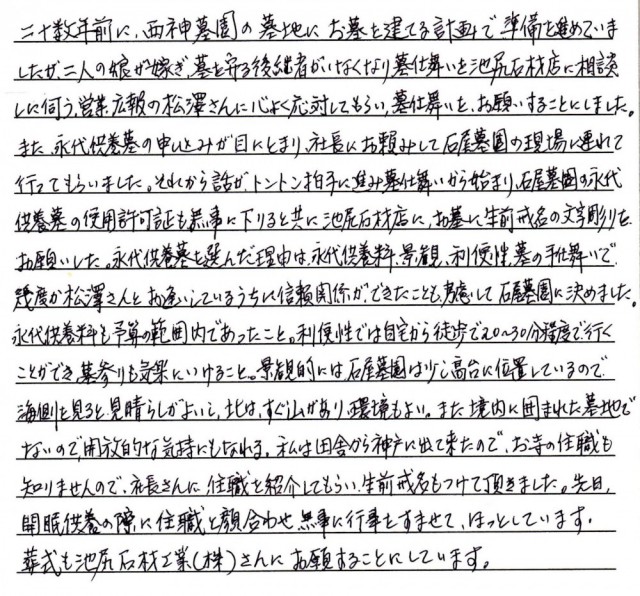 二十数年前に、西神墓園の墓地にお墓を建てる計画で準備を進めていま
したが、二人の娘が嫁ぎ、墓を守る後継者がいなくなり墓仕舞いを池尻石材店に相談
しに伺う、営業広報の松澤さんに心よく応対してもらい、墓仕舞いを、お願いすることにしました。
また、永代供養墓の申し込みが目にとまり、社長にお頼みして石屋墓園の現場に連れて
行ってもらいました。それから話がトントン拍子に進み墓仕舞いから始まり、石屋墓園の永代
供養墓の使用許可証も無事に下りると共に池尻石材店に、お墓に生前戒名の文字彫りを
お願いした。永代供養墓を選んだ理由は、永代供養料、景観、利便性、墓の手仕舞いで
幾度か松澤さんとお逢いしているうちに信頼関係ができたことも考慮して石屋墓園に決めました。
永代供養料も予算の範囲内であったこと。利便性では自宅から徒歩で20〜30分程度で行く
ことができ、墓参りも気楽にいけること。景観的には石屋墓園は少し高台に位置しているので
海側を見ると見晴らしがよいし、北は、すぐ山があり、環境もよい。また境内に囲まれた墓地で
ないので、開放的な気持にもなれる。私は田舎から神戸に出て来たので、お寺の住職も
知りませんので、社長さんに住職を紹介してもらい、生前戒名もつけて頂きました。先日、
開眼供養の際に住職と顔合わせ無事に行事をすませて、ほっとしています。
葬式も池尻石材工業(株)さんにお願することにしています。